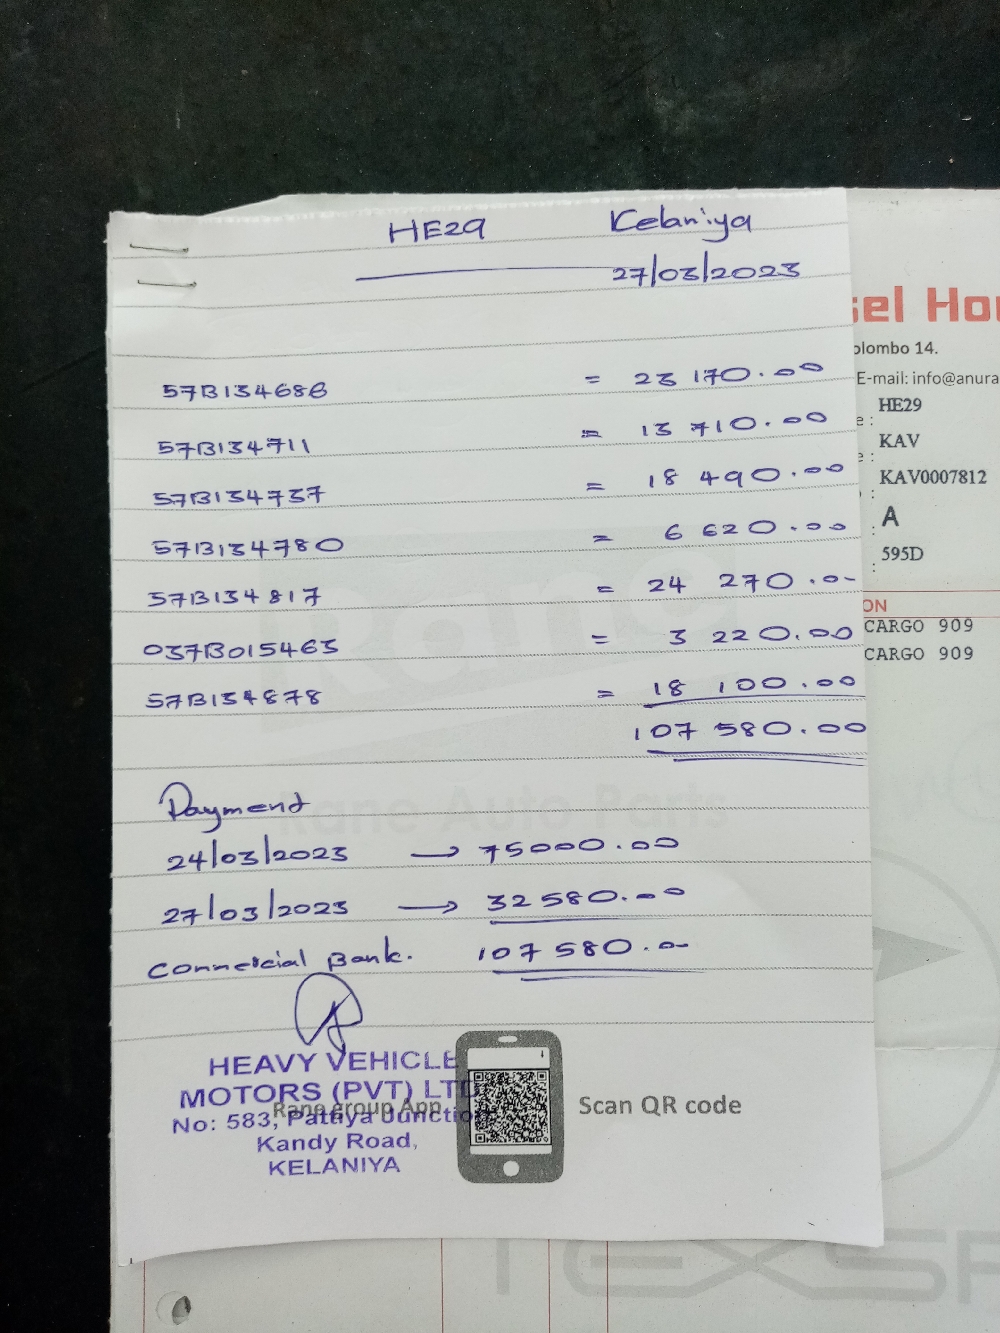 HE29 Kelaniya
27/03/2023
57B134686 = 23 170.00
57B134711 = 13 710.00
57B134737 = 18 490.00
57B134780 = 6 620.00
57B134817 = 24 270.0-
037B015463 = 3 220.00
57B134878 = 18 100.00
107 580.00
Payment
24/03/2023 → 75000.00
27/03/2023 → 32580.00
Commercial Bank. 107 580.0-
HEAVY VEHICLE
MOTORS (PVT) LTD
No: 583, Pattiya Junctio
Kandy Road,
KELANIYA
Rane group App
Scan QR code
Rane
Rane Auto Parts
sel Ho
olombo 14.
E-mail: info@anura
e : HE29
e : KAV
: KAV0007812
: A
: 595D
ON
CARGO 909
CARGO 909
TEXSP